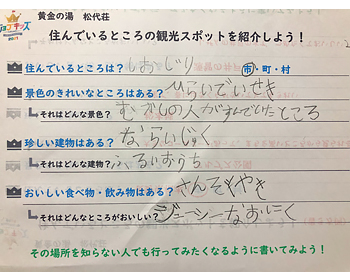 黄金の湯 松代荘
住んでいるところの観光スポットを紹介しよう!
住んでいるところは? しおじり 市・町・村
景色のきれいなところはある? ひらいでいせき
それはどんな景色? むかしの人がすんでいたところ
珍しい建物はある? ならいじゅく
それはどんな建物? ふるいおうち
おいしい食べ物・飲み物はある? さんぞくやき
それはどんなところがおいしい? ジューシーなおにく
その場所を知らない人でも行ってみたくなるように書いてみよう!